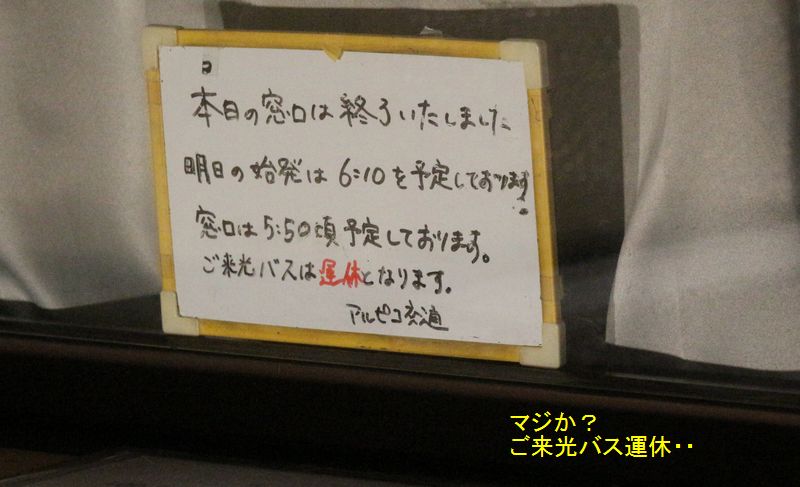 本日の窓口は終了いたしました
明日の始発は6:10を予定しております。
窓口は5:50頃予定しております。
ご来光バスは運休となります。
アルピコ交通
マジか?
ご来光バス運休・・